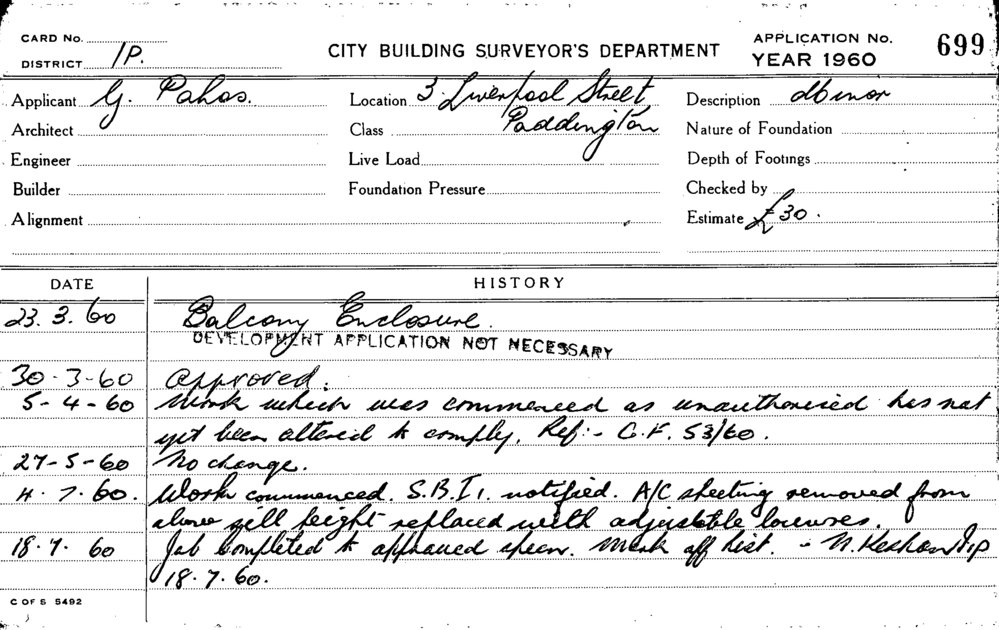 CARD No.
DISTRICT 1P.
CITY BUILDING SURVEYOR'S DEPARTMENT
APPLICATION No. 699
YEAR 1960
Applicant G. Pahos. Location 3 Liverpool Street Description Minor
Architect Class Paddington Nature of Foundation
Engineer Live Load Depth of Footings
Builder Foundation Pressure Checked by
Alignment Estimate £30.
DATE HISTORY
23.3.60 Balcony Enclosure.
DEVELOPMENT APPLICATION NOT NECESSARY
30-3-60 Approved.
5-4-60 Work which was commenced as unauthorised has not
yet been altered to comply. Ref:- C.F. 53/60.
27-5-60 No change.
4.7.60. Work commenced. S.B.I. notified. A/C sheeting removed from
above sill height replaced with adjustable louvres.
18.7.60 Job Completed to approved specn. Mark off list. - N.
18.7.60.
C OF S 5492